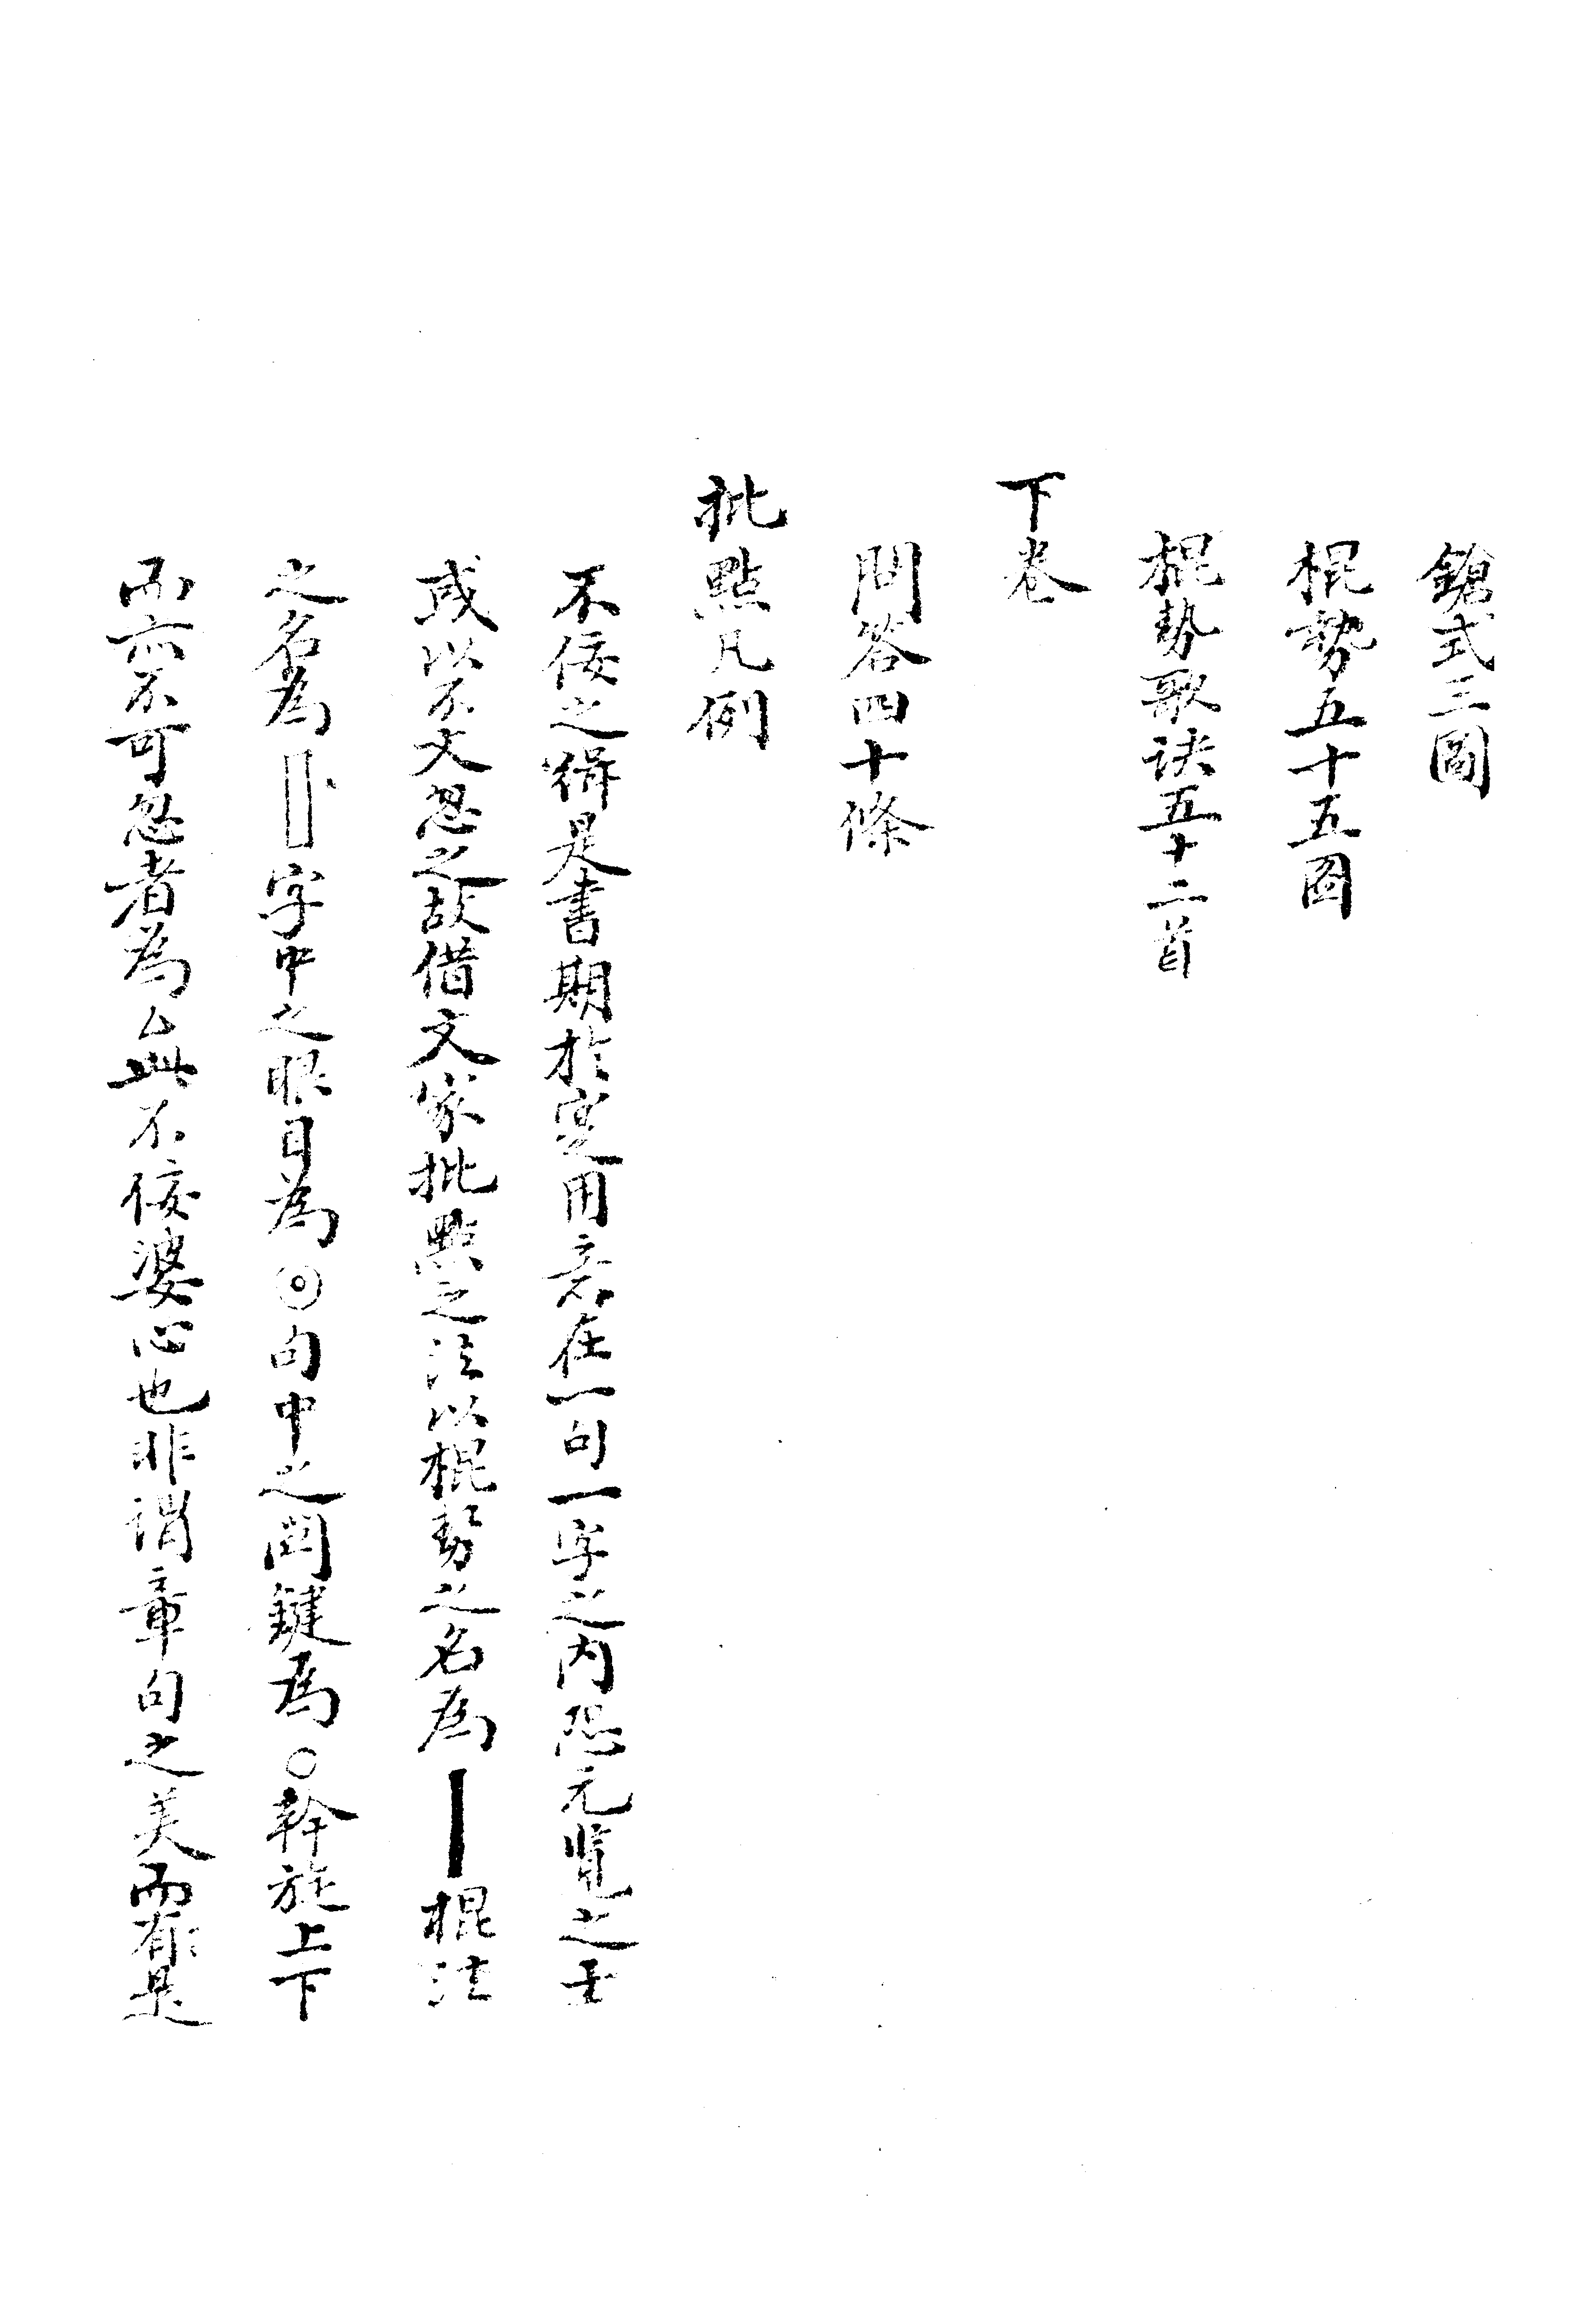 鎗式三圖
棍勢五十五圖
棍勢歌訣五十二首
下卷
問答四十條
批點凡例
不佞之緝是書期於實用意在一句一字之内恐元覽之士
或以不文忽之故借文家批點之法以棍勢之名為┃棍法
之名為▯字中之眼目為◎句中之関鍵為○幹旋上下
而亦不可忽者為△此不佞婆心也非謂章句之美而有是